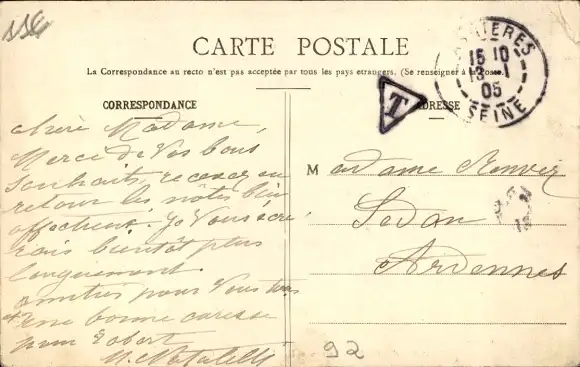 CARTE POSTALE
La Correspondance au recto n'est pas acceptée par tous les pays etrangers. (Se renseigner à la Poste)
CORRESPONDANCE
ADRESSE
15 10
3-1
05
SEINE
T
chère Madame,
Merci de vos bons
souhaits, recevez en
retour les nôtres bien
affectueux. Je vous écri
rais bientôt plus
longuement.
amitiés pour vous tous
et une bonne caresse
pour
Madame
Sedan
Ardennes
92